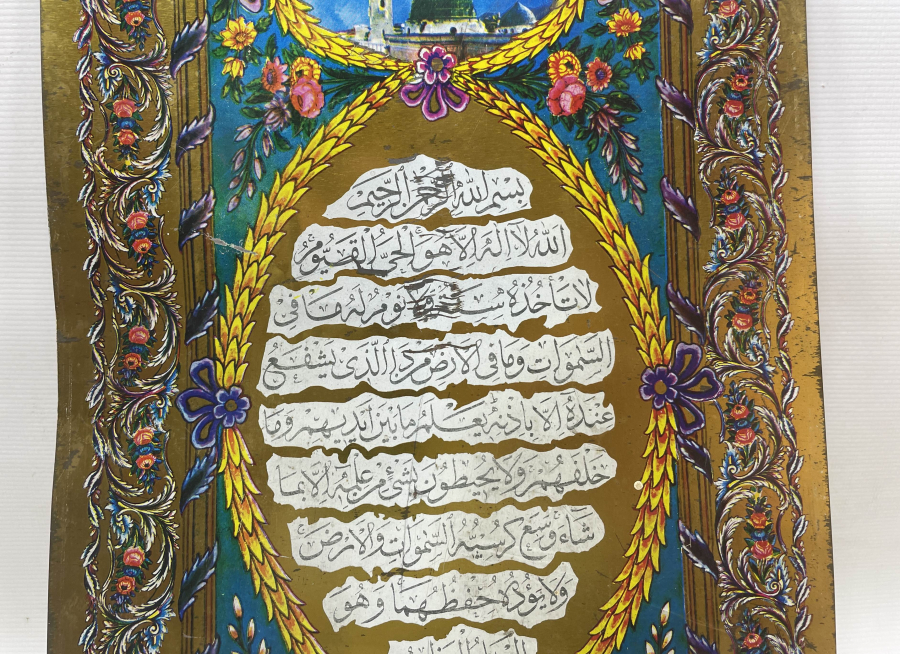 بسم الله الرحمن الرحيم
الله لا اله الا هو الحي القيوم
لا تأخذه سنة ولا نوم له ما في
السموات وما في الارض من ذا الذي يشفع
عنده الا باذنه يعلم ما بين ايديهم وما
خلفهم ولا يحيطون بشئ من علمه الا بما
شاء وسع كرسيه السموات والارض
ولا يؤده حفظهما وهو